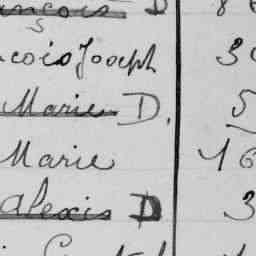 ançois D 8
ncois Joseph 30
Marie D. 5
Marie 16
alexis D 3